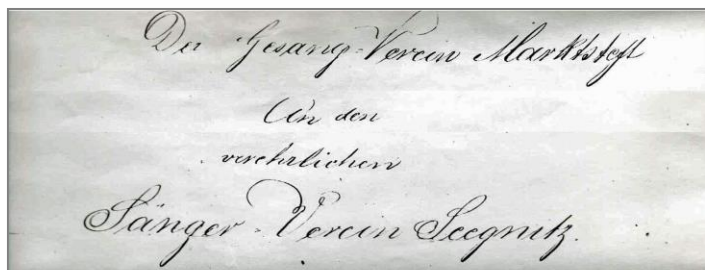 Der Gesang-Verein Marktsteft
An den
verehrlichen
Sänger-Verein Seegnitz.